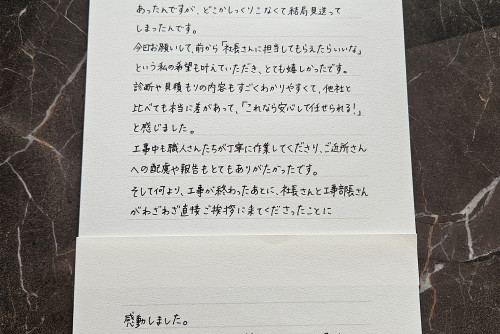 あったんですが、どこかしっくりこなくて結局見送って
しまったんです。
今回お願いして、前から「社長さんに担当してもらえたらいいな」
という私の希望も叶えていただき、とても嬉しかったです。
診断や見積もりの内容もすごくわかりやすくて、他社と
比べても本当に差があって、「これなら安心して任せられる！」
と感じました。
工事中も職人さんたちが丁寧に作業してくださり、ご近所さん
への配慮や報告もとてもありがたかったです。
そして何より、工事が終わったあとに、社長さんと工事部長さん
がわざわざ直接ご挨拶に来てくださったことに
感動しました。